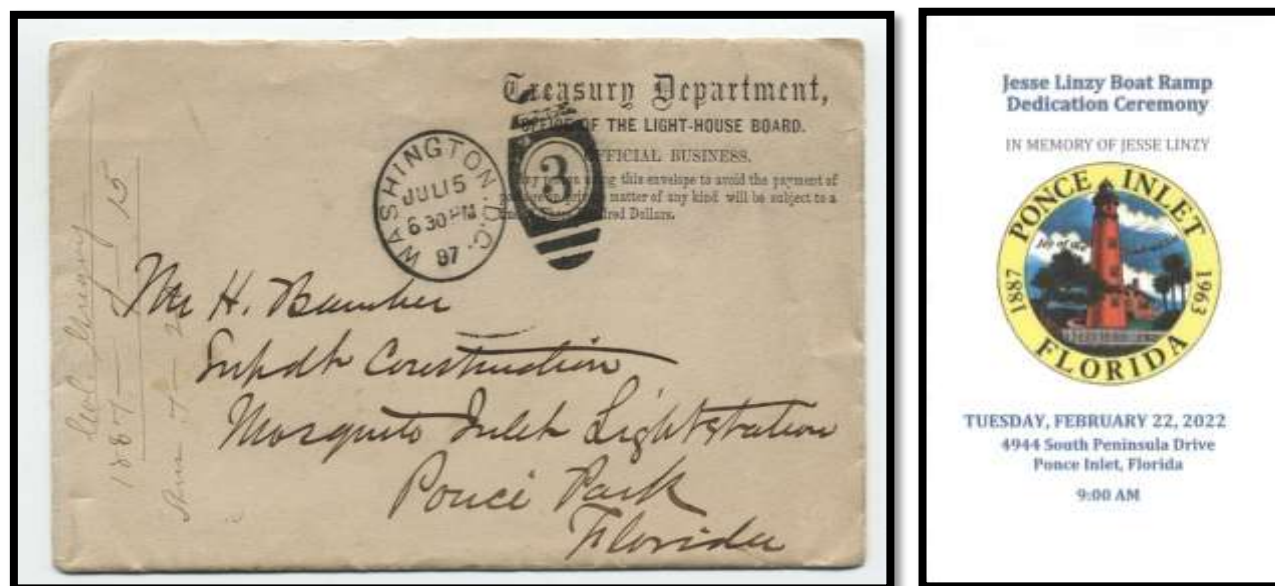 Treasury Department,
OFFICE OF THE LIGHT-HOUSE BOARD.
OFFICIAL BUSINESS.
this envelope to avoid the payment of
matter of any kind will be subject to a
Dollars.
WASHINGTON. D.C.
JUL 15
6 30 PM
87
3
Mr H. Bamber
Supdt Construction
Mosquito Inlet Lightstation
Ponce Park
Florida
1887
15
Jesse Linzy Boat Ramp
Dedication Ceremony
IN MEMORY OF JESSE LINZY
PONCE INLET
1887
1963
FLORIDA
TUESDAY, FEBRUARY 22, 2022
4944 South Peninsula Drive
Ponce Inlet, Florida
9:00 AM